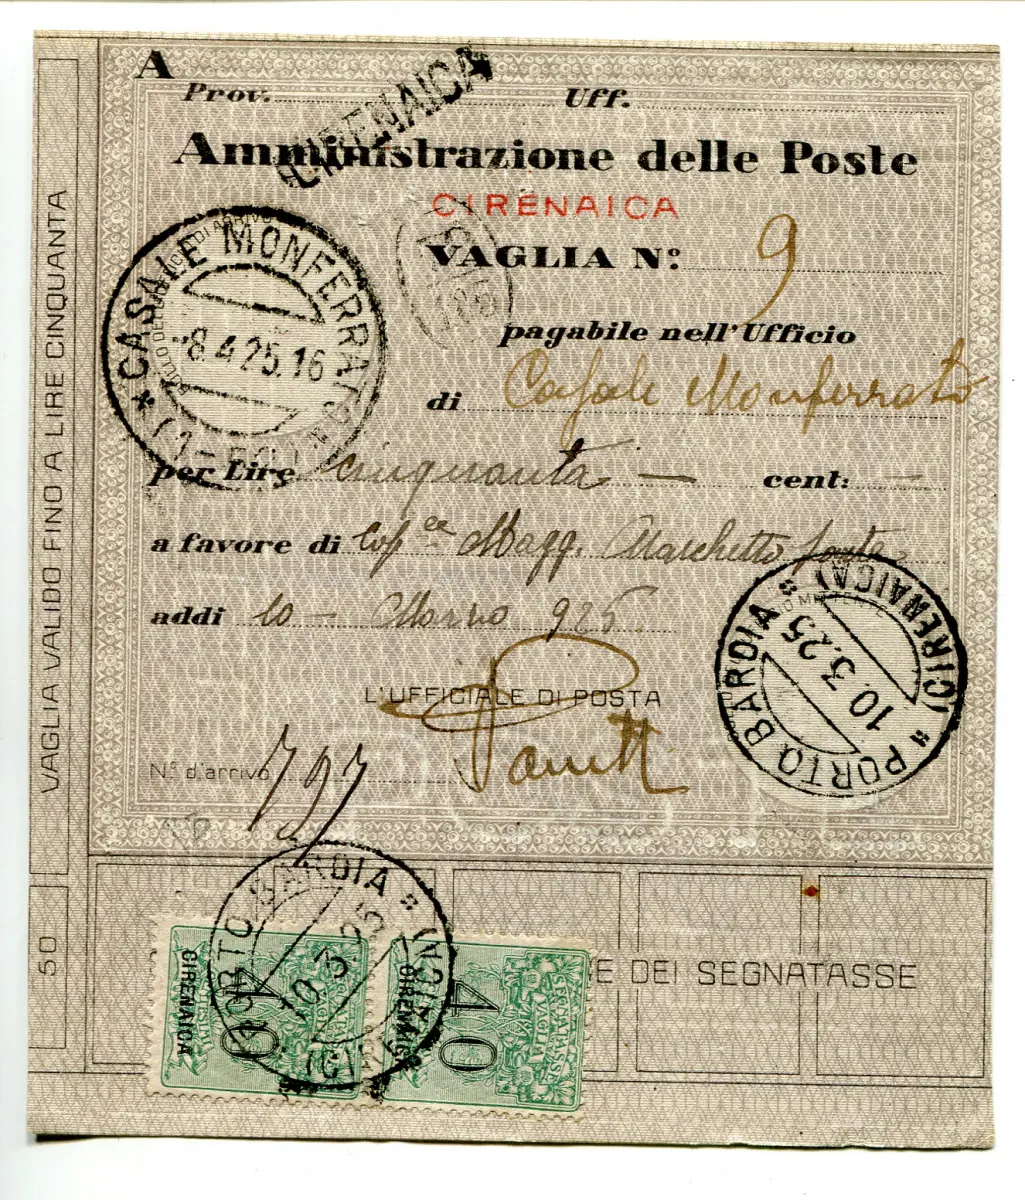 A
Prov. Uff.
CIRENAICA
Amministrazione delle Poste
CIRENAICA
VAGLIA N.º 9
pagabile nell'Ufficio
di Casale Monferrato
per Lire cinquanta — cent: —
a favore di Magg. Marchetto
addi 10 - Marzo 925
L'UFFICIALE DI POSTA
N.º d'arrivo 797
CASALE MONFERRATO
8.4.25.16
PORTO BARDIA * (CIRENAICA) *
10.3.25
VAGLIA VALIDO FINO A LIRE CINQUANTA
50
E DEI SEGNATASSE
PORTO BARDIA *
10.3.25
CIRENAICA
40
CIRENAICA
40
SEGNATASSE
VAGLIA